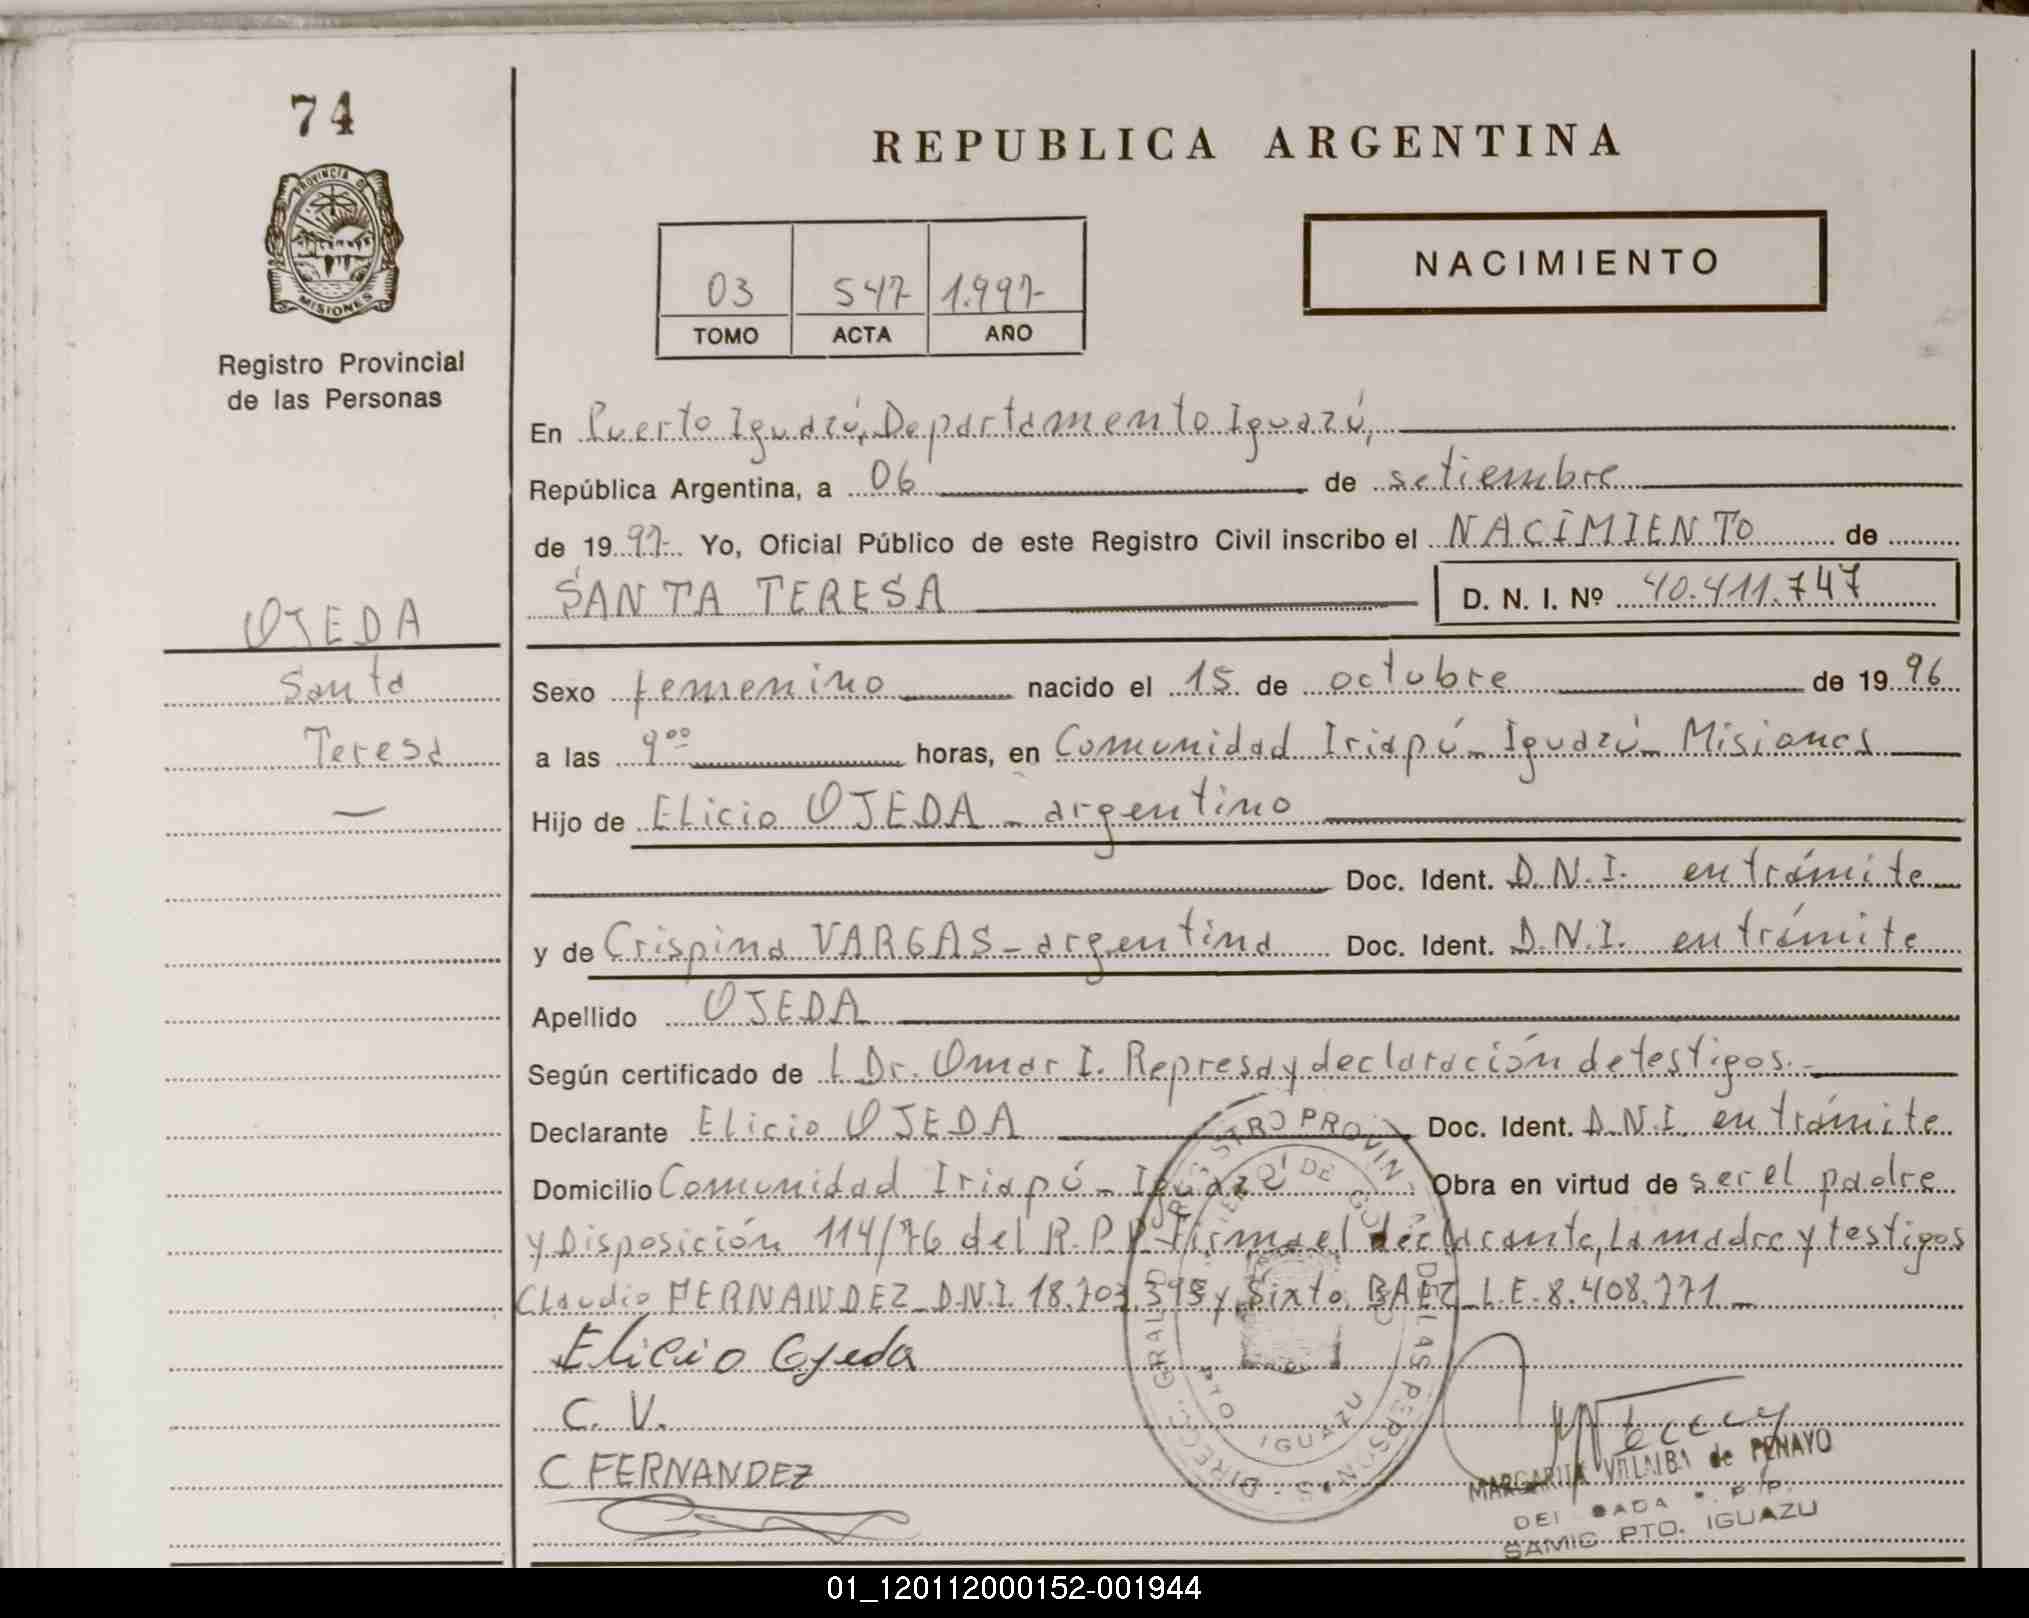 74
REPUBLICA ARGENTINA
PROVINCIA DE
MISIONES
Registro Provincial
de las Personas
NACIMIENTO
03 547 1.997
TOMO ACTA AÑO
En Puerto Iguazú, Departamento Iguazú,
República Argentina, a 06 de setiembre
de 1997 Yo, Oficial Público de este Registro Civil inscribo el NACIMIENTO de
SANTA TERESA D. N. I. Nº 40.411.747
OJEDA
Santa
Teresa
Sexo femenino nacido el 15 de octubre de 1996
a las 9 00 horas, en Comunidad Iriapú - Iguazú - Misiones
Hijo de Elicio OJEDA - argentino
Doc. Ident. D.N.I. en trámite
y de Crispina VARGAS - argentina Doc. Ident. D.N.I. en trámite
Apellido OJEDA
Según certificado de l Dr. Omar I. Represa y declaración de testigos.-
Declarante Elicio OJEDA Doc. Ident. D.N.I. en trámite
Domicilio Comunidad Iriapú - Iguazú Obra en virtud de ser el padre
y Disposición 114/76 del R.P.P. Firma el declarante, la madre y testigos
Claudio FERNANDEZ D.N.I. 18.703.395 y Sixto BAEZ L.E. 8.408.771 -
Elicio Ojeda
C. V.
C FERNANDEZ
MARGARITA VILLALBA de PENAYO
SAMIC PTO. IGUAZU
01_120112000152-001944